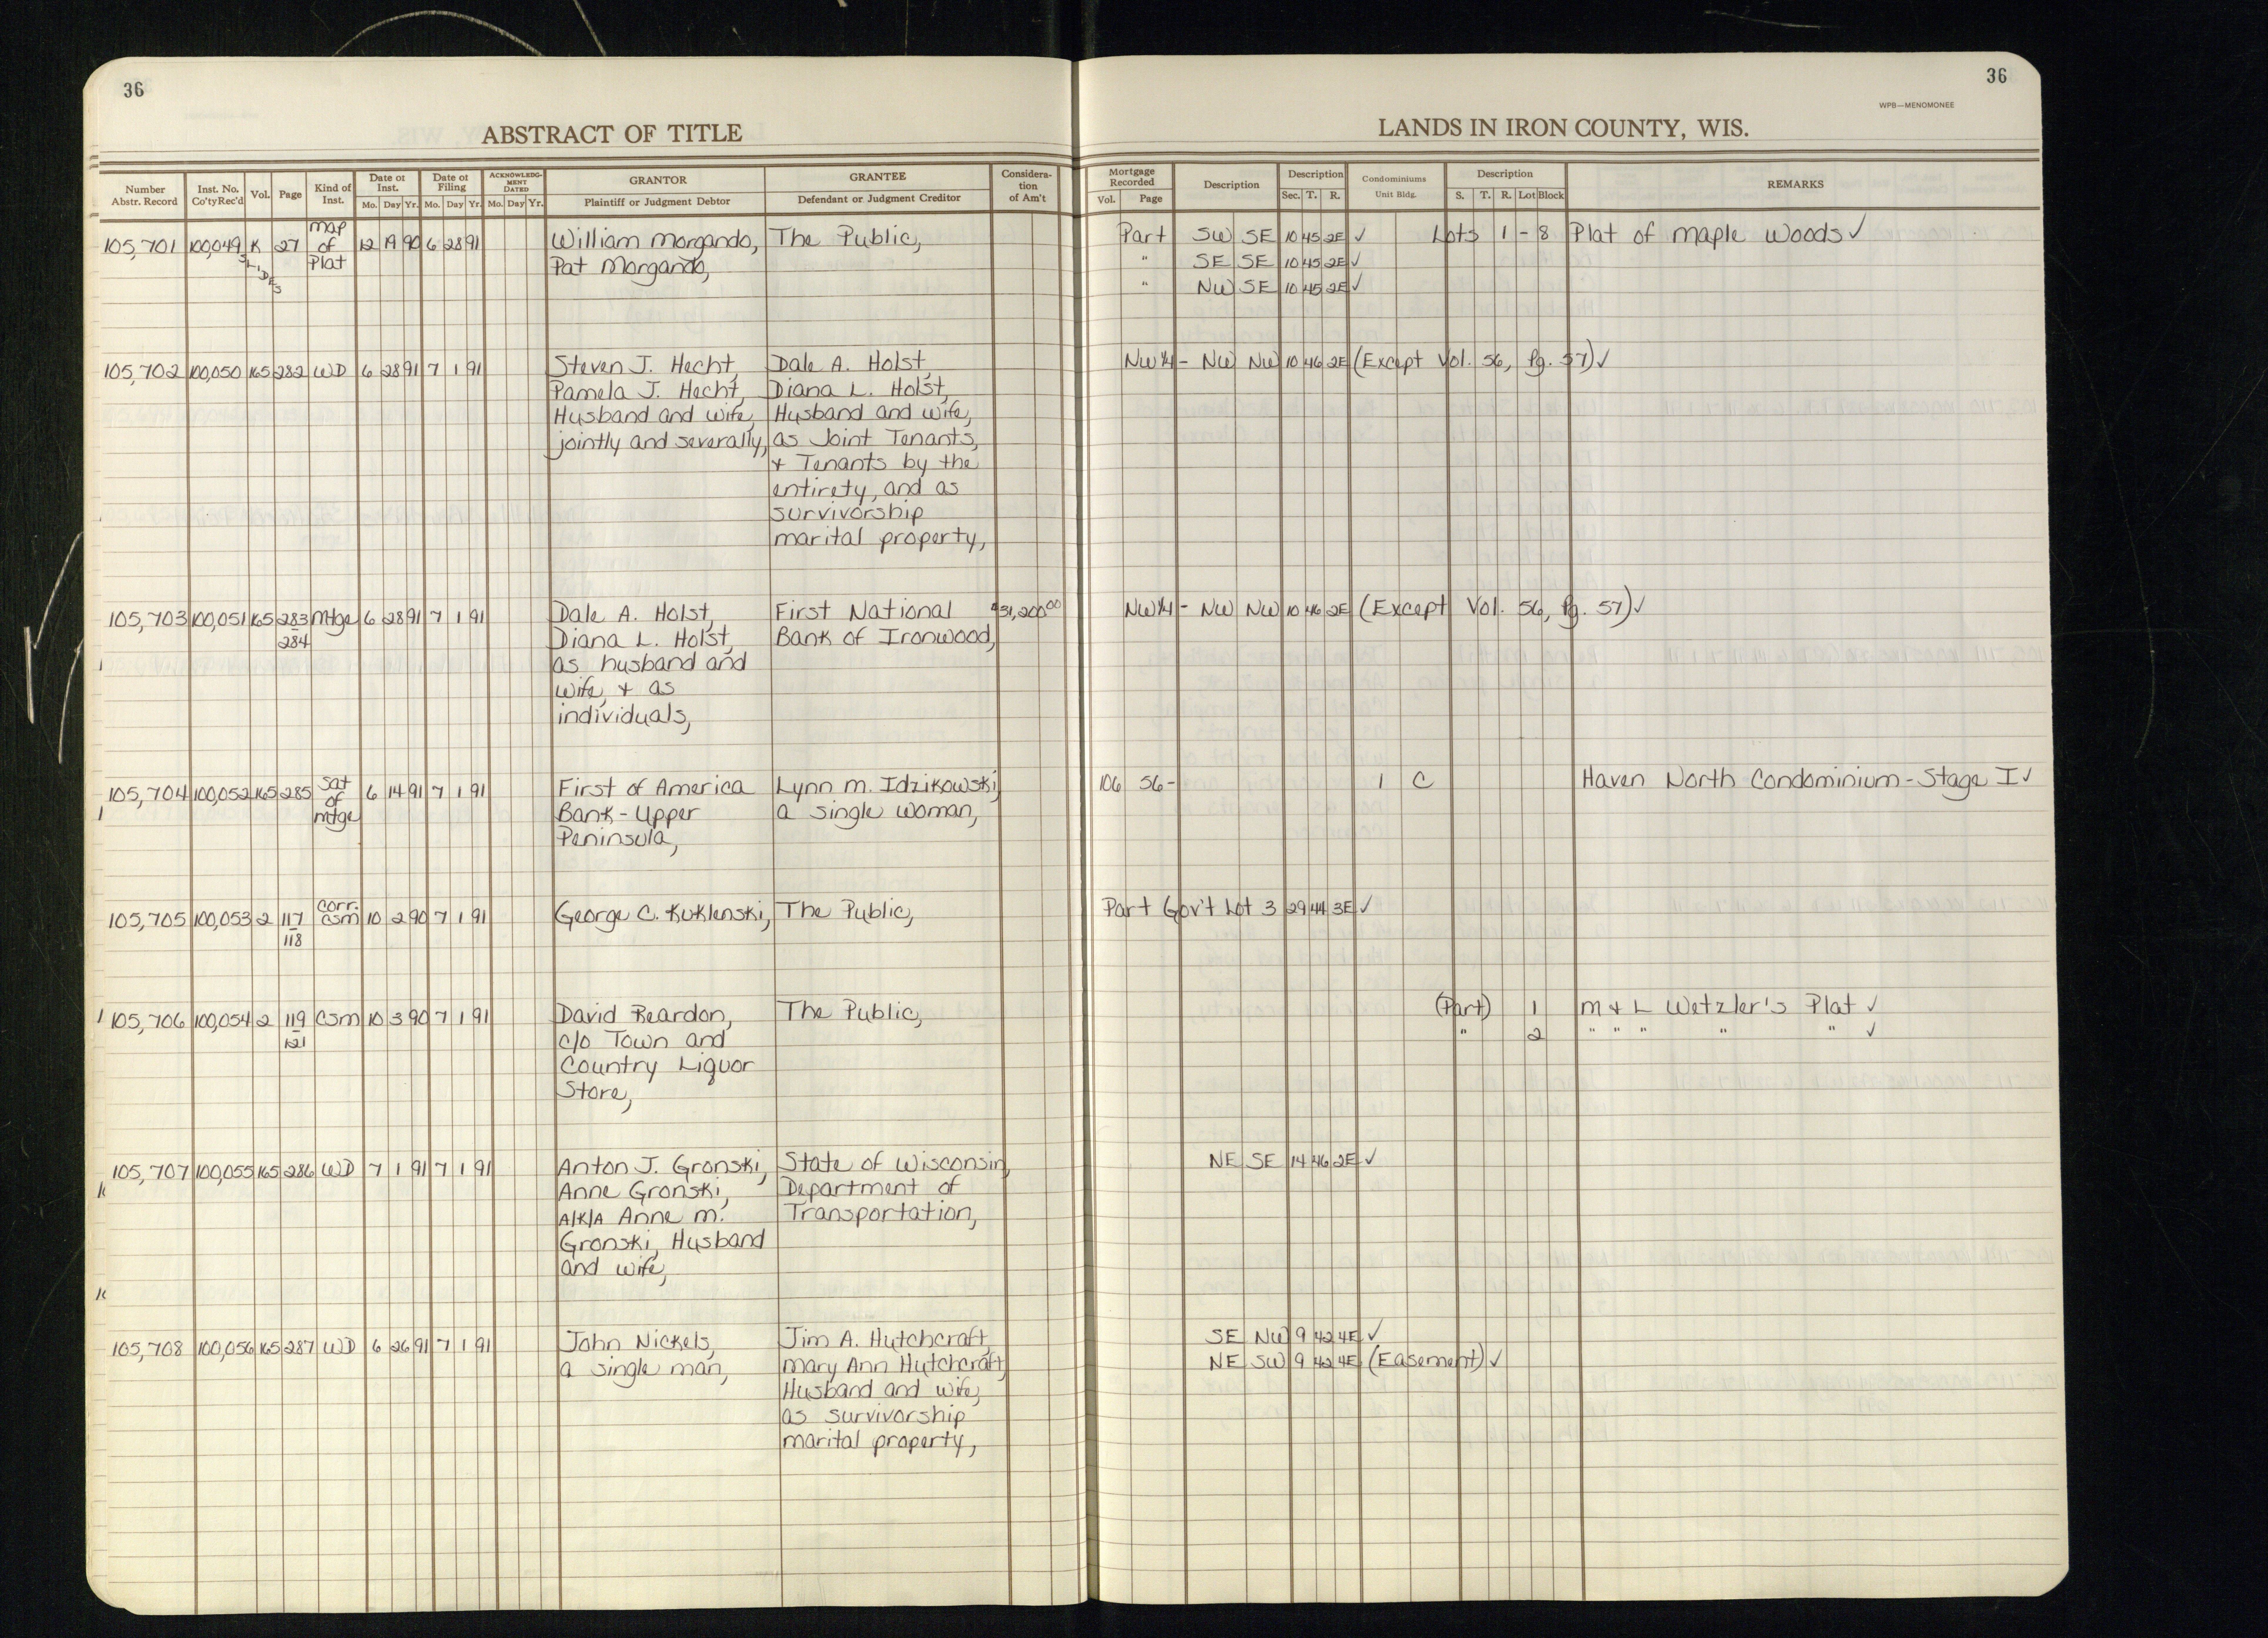 36
36
WPB—MENOMONEE
ABSTRACT OF TITLE
LANDS IN IRON COUNTY, WIS.
Number Abstr. Record | Inst. No. Co'ty Rec'd | Vol. | Page | Kind of Inst. | Date of Inst. Mo. Day Yr. | Date of Filing Mo. Day Yr. | ACKNOWLEDGMENT DATED Mo. Day Yr. | GRANTOR Plaintiff or Judgment Debtor | GRANTEE Defendant or Judgment Creditor | Consideration of Am't | Mortgage Recorded Vol. Page | Description | Description Sec. T. R. | Condominiums Unit Bldg. | Description S. T. R. Lot Block | REMARKS
105,701 100,049 K SLIDES 27 Map of Plat 12 19 90 6 28 91 William Morgando, The Public, Part SW SE 10 45 2E ✓ Lots 1 - 8 Plat of Maple Woods ✓
Pat Morgando, " SE SE 10 45 2E ✓
" NW SE 10 45 2E ✓
105,702 100,050 165 282 WD 6 28 91 7 1 91 Steven J. Hecht, Dale A. Holst, NW¼ - NW NW 10 46 2E (Except Vol. 56, Pg. 57) ✓
Pamela J. Hecht, Diana L. Holst,
Husband and wife, Husband and wife,
jointly and severally, as Joint Tenants,
+ Tenants by the
entirety, and as
survivorship
marital property,
105,703 100,051 165 283 - 284 Mtge 6 28 91 7 1 91 Dale A. Holst, First National $31,200.00 NW¼ - NW NW 10 46 2E (Except Vol. 56, Pg. 57) ✓
Diana L. Holst, Bank of Ironwood,
as husband and
wife, + as
individuals,
105,704 100,052 165 285 Sat of Mtge 6 14 91 7 1 91 First of America Lynn M. Idzikowski, 106 56- 1 C Haven North Condominium - Stage I ✓
Bank - Upper a single woman,
Peninsula,
105,705 100,053 2 117 - 118 Corr. CSM 10 2 90 7 1 91 George C. Kuklenski, The Public, Part Gov't Lot 3 29 44 3E ✓
105,706 100,054 2 119 - 121 CSM 10 3 90 7 1 91 David Reardon, The Public, (Part) 1 M & L Wetzler's Plat ✓
c/o Town and " 2 " " " " " ✓
Country Liquor
Store,
105,707 100,055 165 286 WD 7 1 91 7 1 91 Anton J. Gronski, State of Wisconsin, NE SE 14 46 2E ✓
Anne Gronski, Department of
A/K/A Anne M. Transportation,
Gronski, Husband
and wife,
105,708 100,056 165 287 WD 6 26 91 7 1 91 John Nickels, Jim A. Hutchcraft, SE NW 9 42 4E ✓
a single man, Mary Ann Hutchcraft, NE SW 9 42 4E (Easement) ✓
Husband and wife,
as survivorship
marital property,